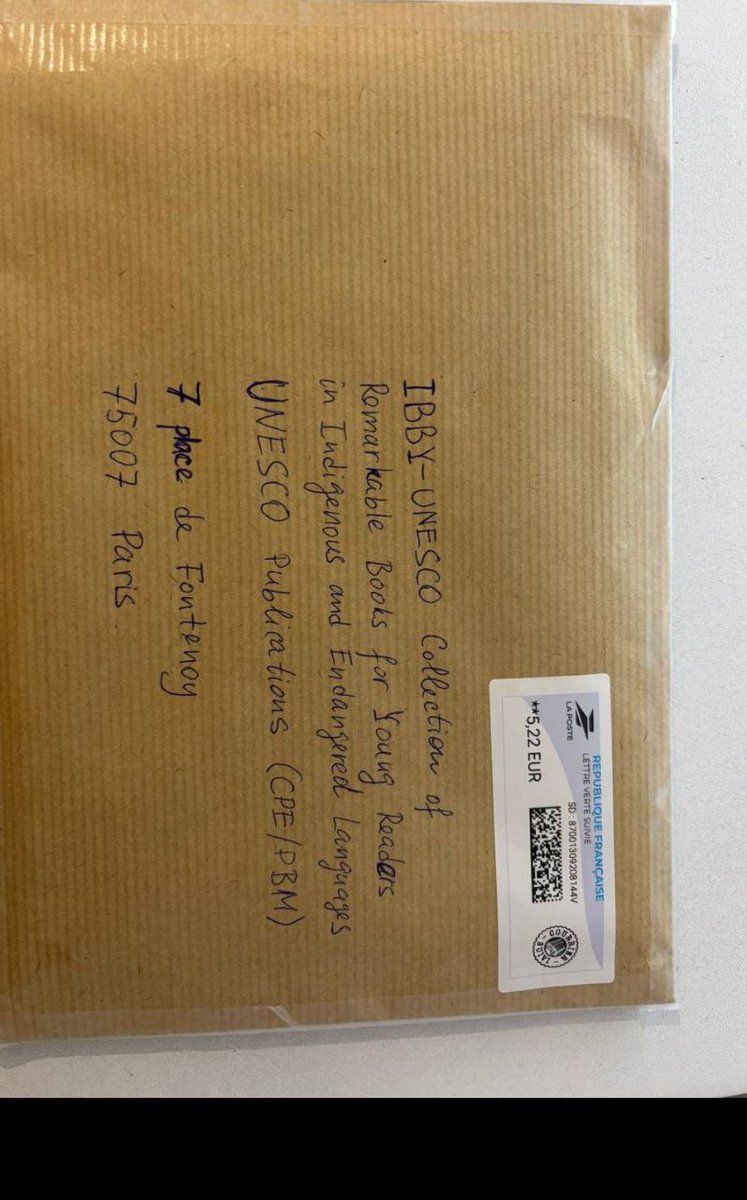 REPUBLIQUE FRANÇAISE
LETTRE VERTE SUIVIE
LA POSTE
SD : 87001309208144V
**5,22 EUR
IBBY-UNESCO Collection of
Remarkable Books for Young Readers
in Indigenous and Endangered Languages
UNESCO Publications (CPE/PBM)
7 place de Fontenoy
75007 Paris